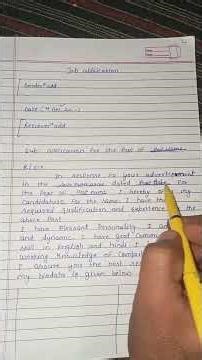 Job application
Sender's add.
Date
Receiver's add.
Sub: application for the Post of Post Name
R/sir
In response to your advertisement
in the dated for
the Post of Post name I hereby my
Candidature for the same. I have the
required Qualification and experience the
above Post
I have Pleasant Personality. I a
and dynamic. I have good Commu
skill in English and hindi. I
Working Knowledge of Compu
I assure you the best se
my biodata is given below